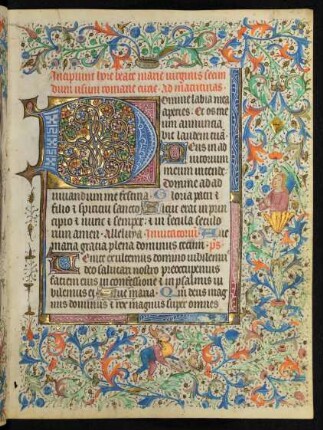 Incipiunt hore beate marie virginis secun
dum usum romane curie. Ad matutinas.
Domine labia mea
aperies. Et os me
um annuncia
bit laudem tuam
Deus in ad
iutorium
meum intende
Domine ad ad
iuvandum me festina. Gloria patri et
filio et spiritui sancto. Sicut erat in prin
cipio et nunc et semper et in secula seculo
rum amen. Alleluya. Invitatorium. Ave
maria gratia plena dominus tecum. ps
Venite exultemus domino iubilemus
deo salutari nostro preoccupemus
faciem eius in confessione et in psalmis iu
bilemus ei. Ave maria. Quoniam deus mag
nus dominus et rex magnus super omnes